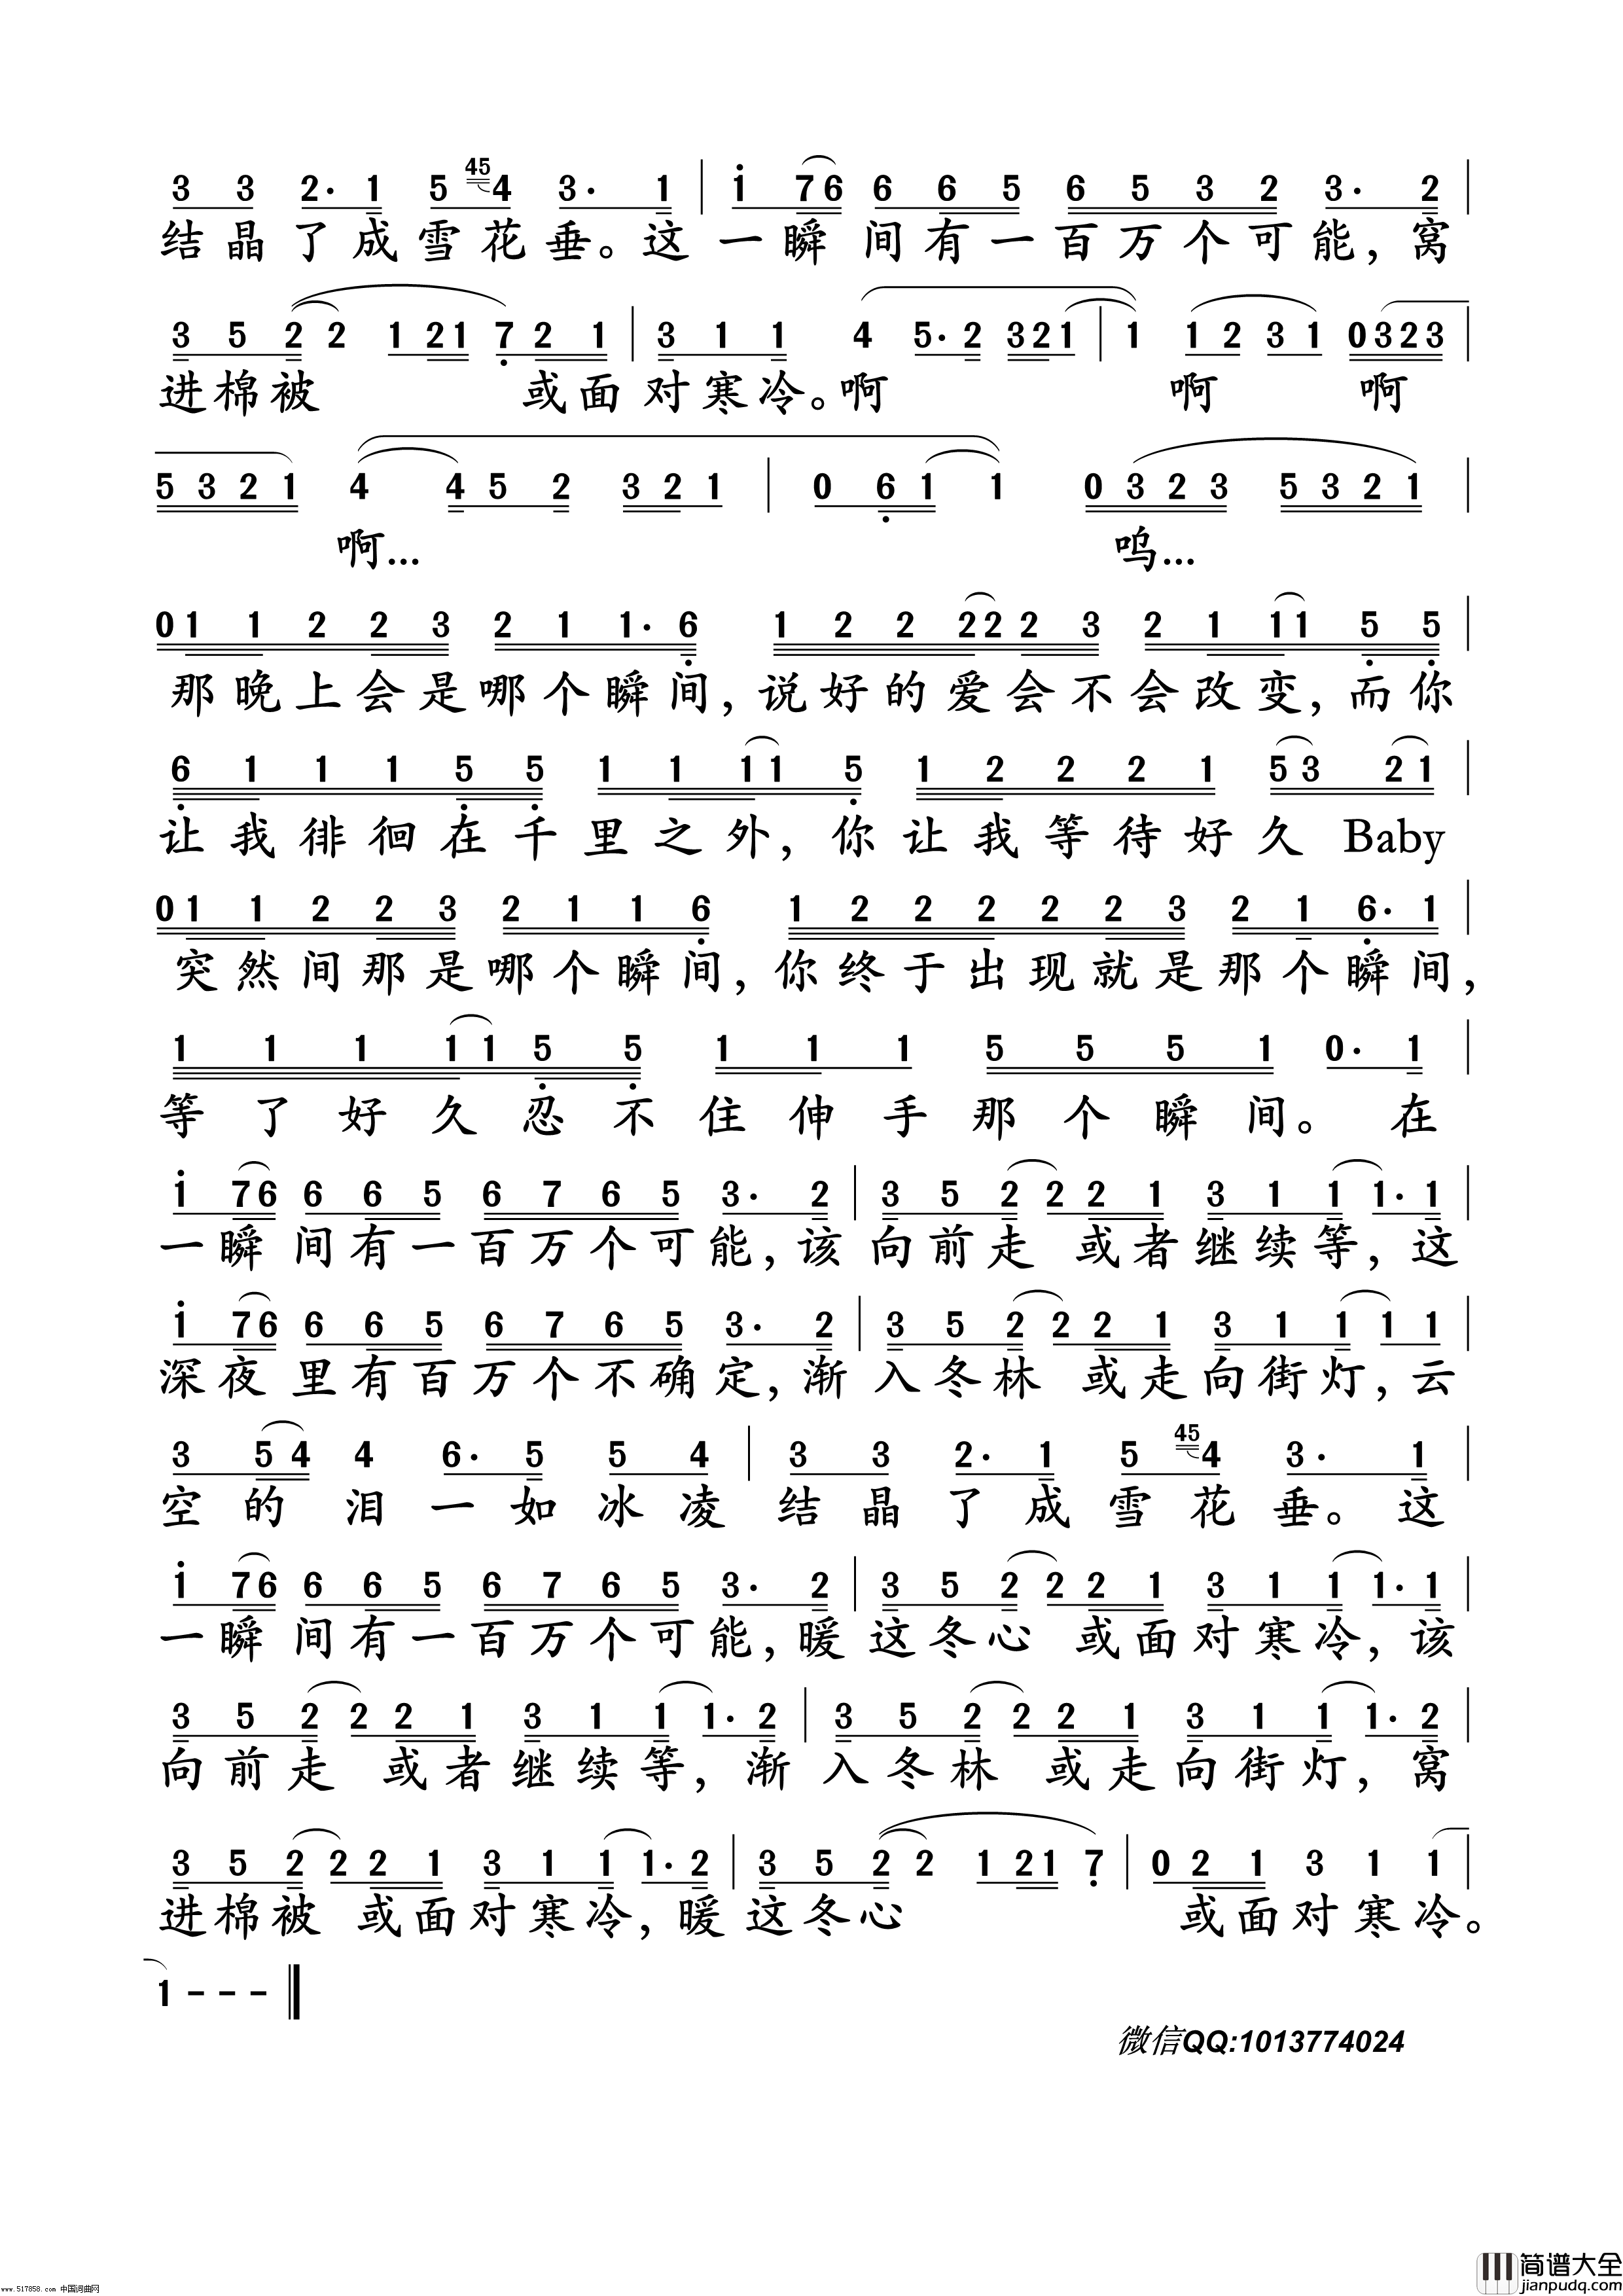 3 3 2· 1 5 45 4 3· 1 | 1 76 6 6 5 6 5 3 2 3· 2 |
结晶了成雪花垂。这一瞬间有一百万个可能，窝
3 5 2 2 1 21 7 2 1 | 3 1 1 4 5· 2 321 | 1 1 2 3 1 0323 |
进棉被 或面对寒冷。啊 啊 啊
5 3 2 1 4 4 5 2 3 2 1 | 0 6 1 1 0 3 2 3 5 3 2 1 |
啊... 呜...
0 1 1 2 2 3 2 1 1· 6 1 2 2 2 2 2 3 2 1 1 1 5 5 |
那晚上会是哪个瞬间，说好的爱会不会改变，而你
6 1 1 1 5 5 1 1 1 1 5 1 2 2 2 1 5 3 2 1 |
让我徘徊在千里之外，你让我等待好久 Baby
0 1 1 2 2 3 2 1 1 6 1 2 2 2 2 2 3 2 1 6· 1 |
突然间那是哪个瞬间，你终于出现就是那个瞬间，
1 1 1 1 1 5 5 1 1 1 5 5 5 1 0· 1 |
等了好久忍不住伸手那个瞬间。在
1 76 6 6 5 6 7 6 5 3· 2 | 3 5 2 2 2 1 3 1 1 1· 1 |
一瞬间有一百万个可能，该向前走 或者继续等，这
1 76 6 6 5 6 7 6 5 3· 2 | 3 5 2 2 2 1 3 1 1 1 1 |
深夜里有百万个不确定，渐入冬林 或走向街灯，云
3 5 4 4 6· 5 5 4 | 3 3 2· 1 5 45 4 3· 1 |
空的泪一如冰凌结晶了成雪花垂。这
1 76 6 6 5 6 7 6 5 3· 2 | 3 5 2 2 2 1 3 1 1 1· 1 |
一瞬间有一百万个可能，暖这冬心 或面对寒冷，该
3 5 2 2 2 1 3 1 1 1· 2 | 3 5 2 2 2 1 3 1 1 1· 2 |
向前走 或者继续等，渐入冬林 或走向街灯，窝
3 5 2 2 2 1 3 1 1 1· 2 | 3 5 2 2 1 21 7 | 0 2 1 3 1 1 |
进棉被 或面对寒冷，暖这冬心 或面对寒冷。
1 - - -
微信QQ:1013774024
简谱大全
jianpudq.com
www.517858.com 中国词曲网